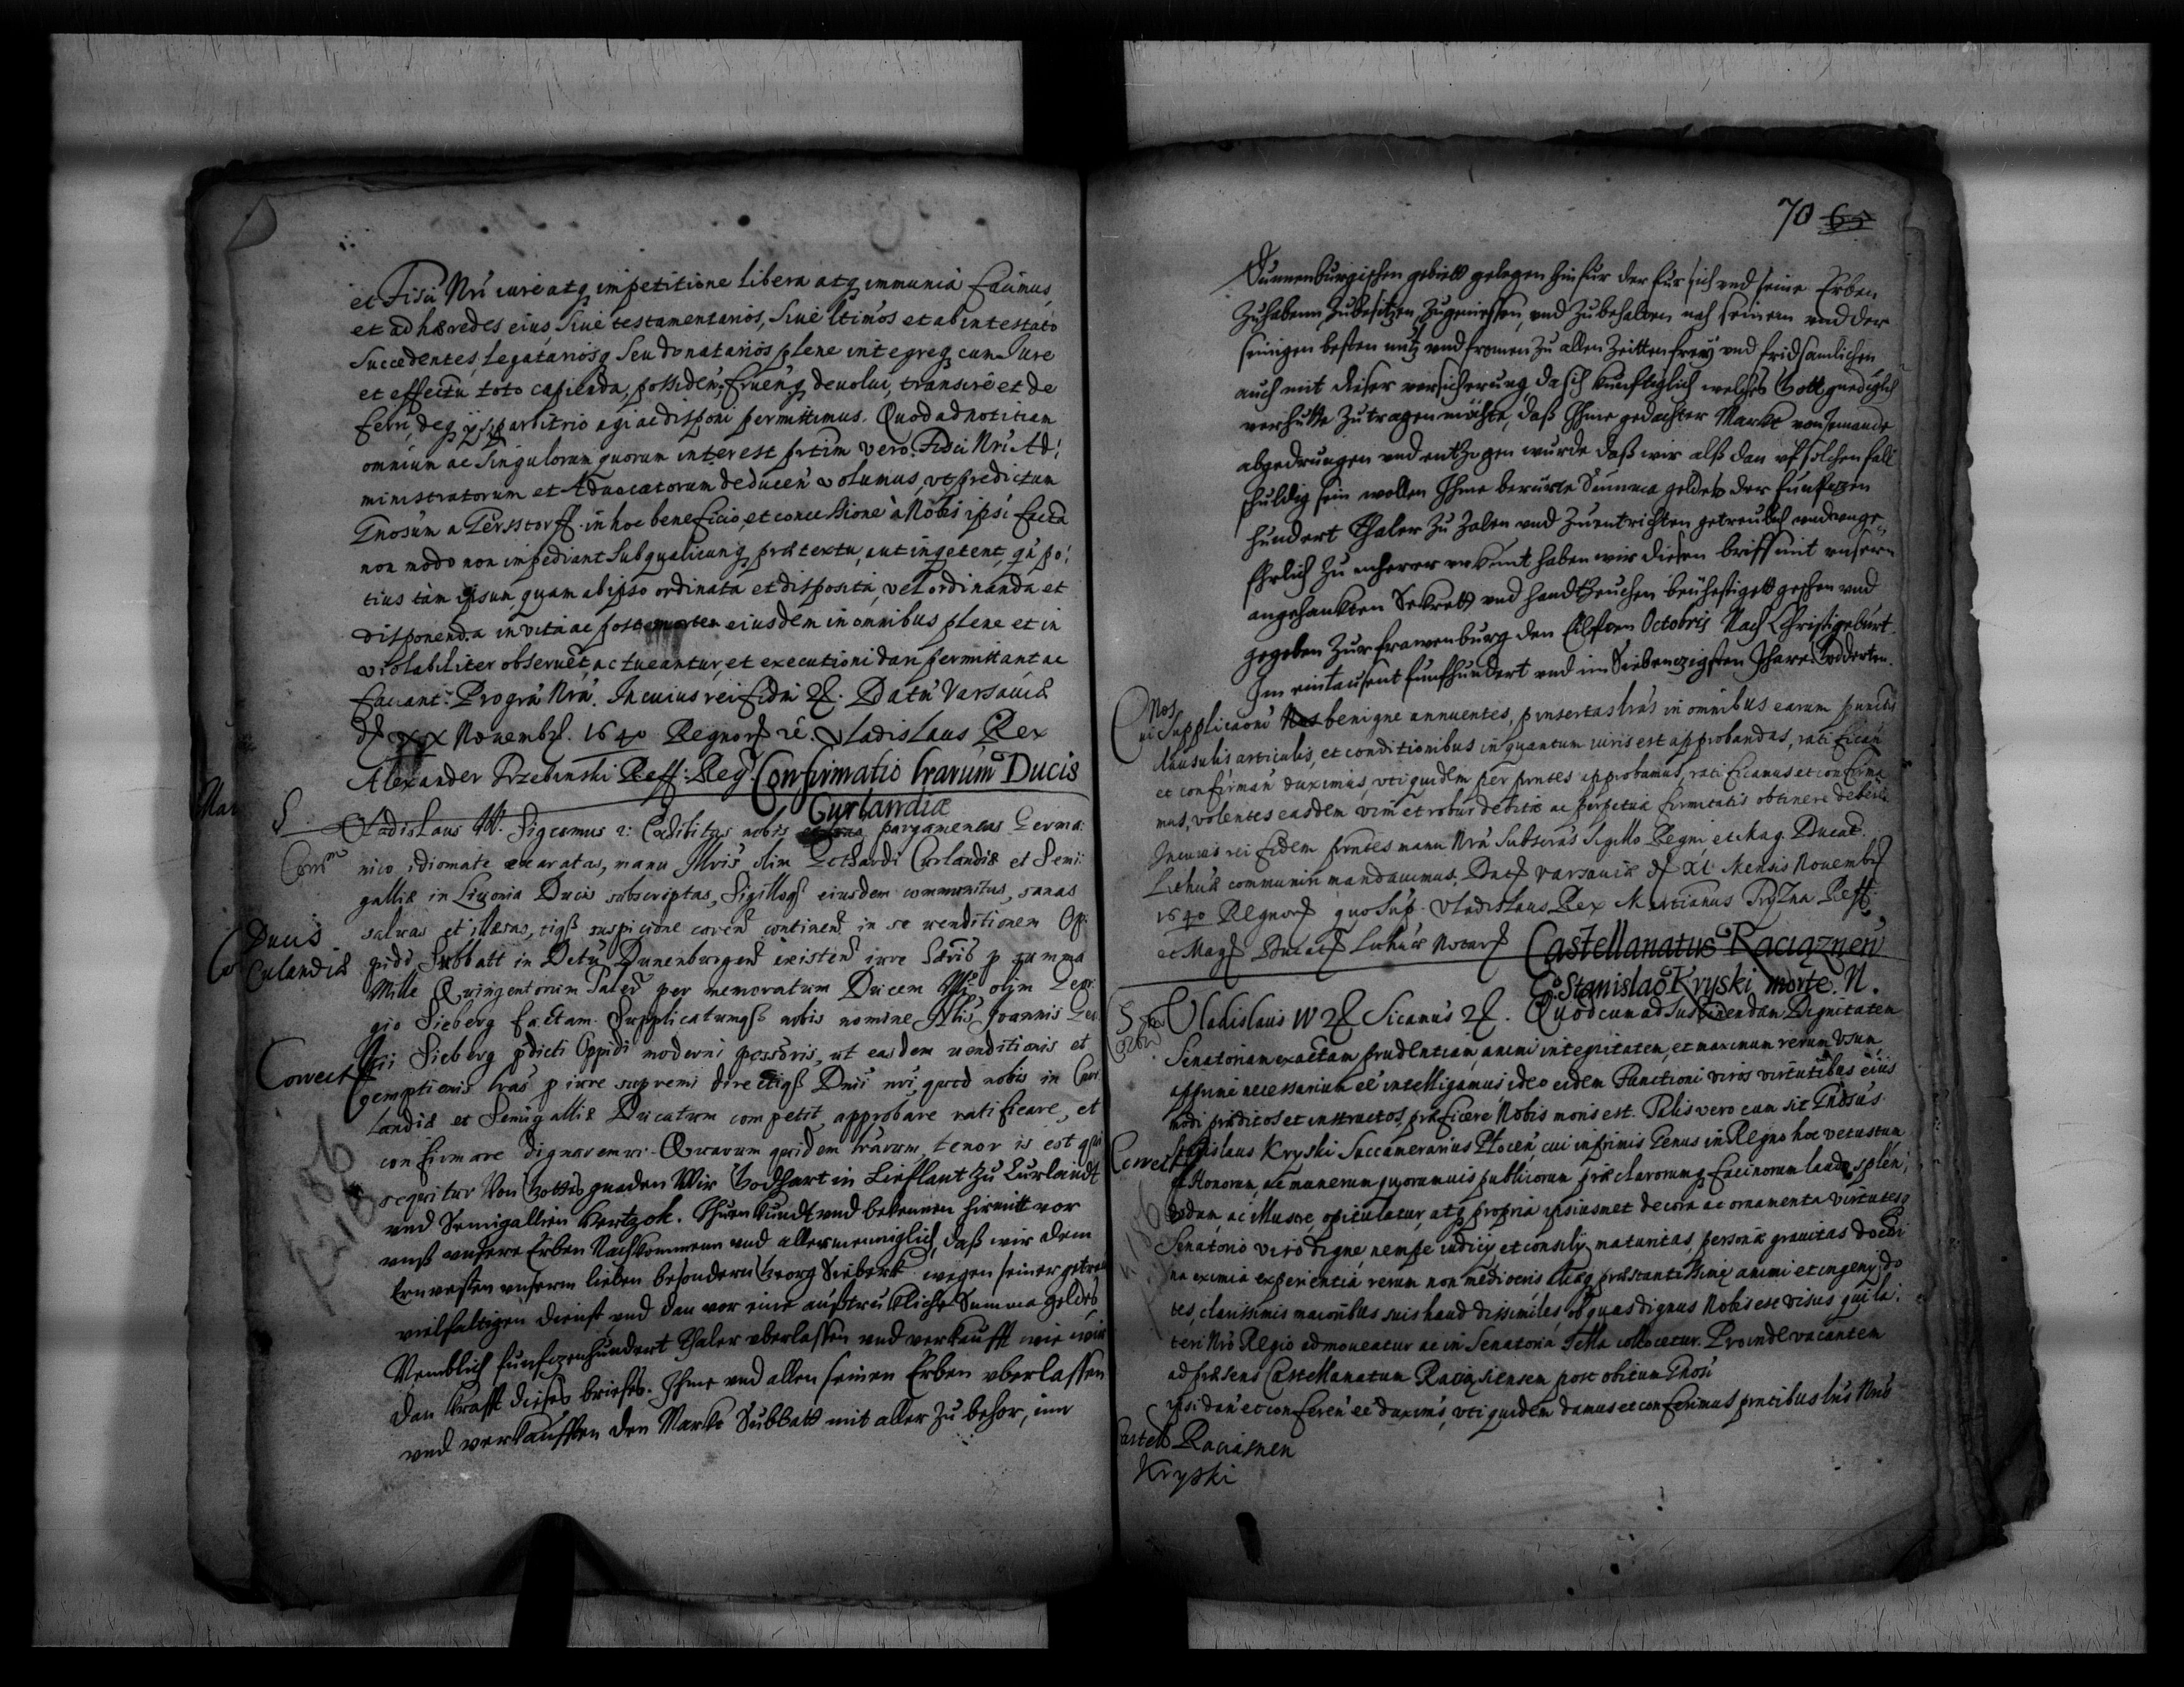 et Fisci Nri iure atq impetitione libera atq immunia facimus,
et ad hæredes eius, siue testamentarios, siue ltimos et ab intestato
succedentes, legatariosq seu donatarios plene integreq cum Iure
et effectu toto capienda, possiden fruenq deuolui, transire et de
ferri, deq ijs p arbitrio agi ac disponi permittimus. Quod ad notitiam
omnium ac singulorum quorum interest prtim vero Fisci Nri Ad:
ministratorum et Aduocatorum deducen volumus, vt predictum
Gnosum a Gersstorff in hoc beneficio et concessione a Nobis ipsi facta
non modo non impediant sub qualicunq prætextu, aut inqetent, qn po:
tius tam ipsum, quam ab ipso ordinata et disposita, vel ordinanda et
disponenda in vita ac post mortem eiusdem in omnibus plene et in
violabiliter obseruēt, ac tueantur, et executioni dari permittant ac
faciant. Pro gra Nra. In cuius rei fidm &. Datu Varsauiæ
d XX Nouemb. 1640 Regnor &. Vladislaus Rex
Alexander Trzebinski Reff: Reg. Confirmatio lrarum Ducis
Curlandiæ
S
Vladislaus IV. Sigcamus &: Exhibitas nobis pargameneas Germa:
Conf
nico idiomate exaratas, manu Illris olim Gothardi Curlandiæ et Semi:
galliæ in Liuonia Ducis subscriptas, Sigilloq eiusdem communitas, sanas
saluas et illæsas, oiq suspicione caren continen in se venditionem Op:
Ducis
Curlandiæ
pidi Subbatt in Dctu Dunenburgen existen iure p summa
Mille Quingentorum Taler per memoratum Ducem olim Geor:
gio Sieberg factam. Supplicatumq nobis nomine Joannis Geor
Correct
gii Sieberg pdicti Oppidi moderni possoris, ut easdem venditionis et
gemptionis lras p iure supremi directiq Dnii nri, quod nobis in Cur
landiæ et Semigalliæ Ducatum competit, approbare ratificare, et
confirmare dignaremur. Quarum quidem lrarum tenor is est qui
sequitur Von Gottes gnaden Wir Godthart in Liefflant zu Curlandt
vnd Semigallien Hertzok. Thuen kundt vnd bekennen hiemitt vor
vnß vnsere Erben Nachkommenn vnd allermenniglich, daß wir dem
Ernvesten vnserm lieben besondern Georg Sieberk wegen seiner getreu
vielfaltigen dienst vnd dan vor eine außtrukliche Summa geldes
Nemblich funfzenhundert Thaler vberlassen vnd verkaufft wie wir
dan krafft dieses briefes. Ihme vnd allen seinen Erben vberlassen
vnd verkaufften den Markt Subbatt mit aller zu behor, im
70 65
Dunnenburgischen gebiett gelegen hinfur der fur sich vnd seine Erben
zuhabenn zubesitzen, zugeniessen, vnd zubehalden nach seinem vnd der
seinigen besten nutz vnd fromen zu allen zeitten frey vnd fridsamlichen
auch mit dieser versicherung, da sich kunfftiglich welches Gott gnediglich
verhutte zutragen möchte, daß Ihme gedachter Markt von Jemandt
abgedrungen vnd entzogen wurde daß wir alß dan vf solchen fall
schuldig sein wollen Ihme berurte Summa geldes der funfzen
hundert Thaler zu zalen vnd zuentrichten getreulich vnd vnge:
fehrlich zu meherer vrkunt haben wir diesen briff mit vnserm
angehankten Sekrett vnd handtzeuchen beuhestigett geschen vnd
gegeben zur frawenburg den Eilfften Octobris Nach Christi geburt.
Im eintausent funfhundert vnd im Siebenzigsten Ihare.
Nos
Cui Supplicaoni benigne annuentes, pinsertas lras in omnibus earum punctis
clausulis articulis, et conditionibus in quantum iuris est approbandas, ratifican
et confirman duximus, vti quidem per prntes approbamus, ratificamus et confirma
mus, volentes easdem vim et robur debitæ ac perpetuæ firmitatis obtinere debere.
In cuius rei fidem prntes manu Nra subscras Sigillo Regni, et Mag. Ducat.
Lithuæ communiri mandauimus. Dat Varsauiæ d XX Mensis Nouemb
1640 Regnor quo sup. Vladislaus Rex Martianus Tryzna Reff:
et Mag Ducat Lithuæ Notar Castellanatus Raciąznen
Gō Stanislao Kryski morte N.
Vladislaus IV & Sicamus &. Quod cum ad sustinendam Dignitatem
Senatoriam exactam prudentiam, animi integritatem, et maximum rerum vsum,
apprime necessarium eē intelligamus ideo eidem Functioni viros virtutibus eius
modi præditos et instructos, præficere Nobis moris est. Talis vero cum sit Gnosus
Correct
Stanislaus Kryski Succamerarius Plocen, cui inprimis Genus in Regno hoc vetustum
et Honorum, ac munerum quoramuis publicorum præclarorumq facinorum laude splen:
dodum, ac illustre, opitulatur, atq propria ipsiusmet decora ac ornamenta virtutesq
Senatorio viro digne, nempe iudicij et consilij maturitas, personæ grauitas doctri
na eximia experientia rerum non mediocris aliæq præstantissimæ animi et ingenij do
tes, clarissimis maioribus suis haud dissimiles, ob quas dignus Nobis est visus qui la:
teri Nro Regio admoueatur ac in Senatoria sella collocetur. Proinde vacantem
ad præsens Castellanatum Raciąsiensem post obitum Gnosi
ipsi dan et conferen eē duximus, vti quidem damus et conferimus prntibus lris Nris
Castell Raciasnen
Kryski